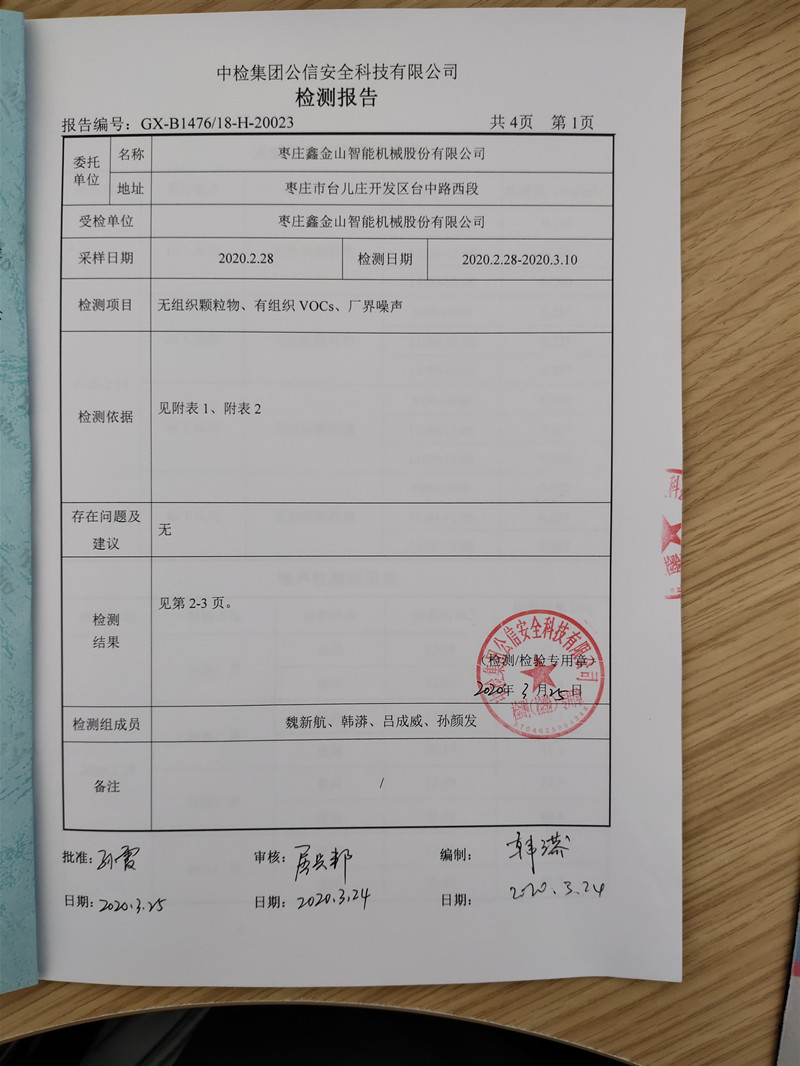 中检集团公信安全科技有限公司
检测报告
报告编号：GX-B1476/18-H-20023 共 4页 第 1页
委托单位 名称 枣庄鑫金山智能机械股份有限公司
地址 枣庄市台儿庄开发区台中路西段
受检单位 枣庄鑫金山智能机械股份有限公司
采样日期 2020.2.28 检测日期 2020.2.28-2020.3.10
检测项目 无组织颗粒物、有组织 VOCs、厂界噪声
检测依据 见附表 1、附表 2
存在问题及
建议
无
检测
结果
见第 2-3 页。
中检集团公信安全科技有限公司
（检测/检验专用章）
2020年 3 月 25 日
检测组成员 魏新航、韩漭、吕成威、孙颜发
备注 /
批准： 审核： 编制：韩漭
日期：2020.3.25 日期：2020.3.24 日期：2020.3.24